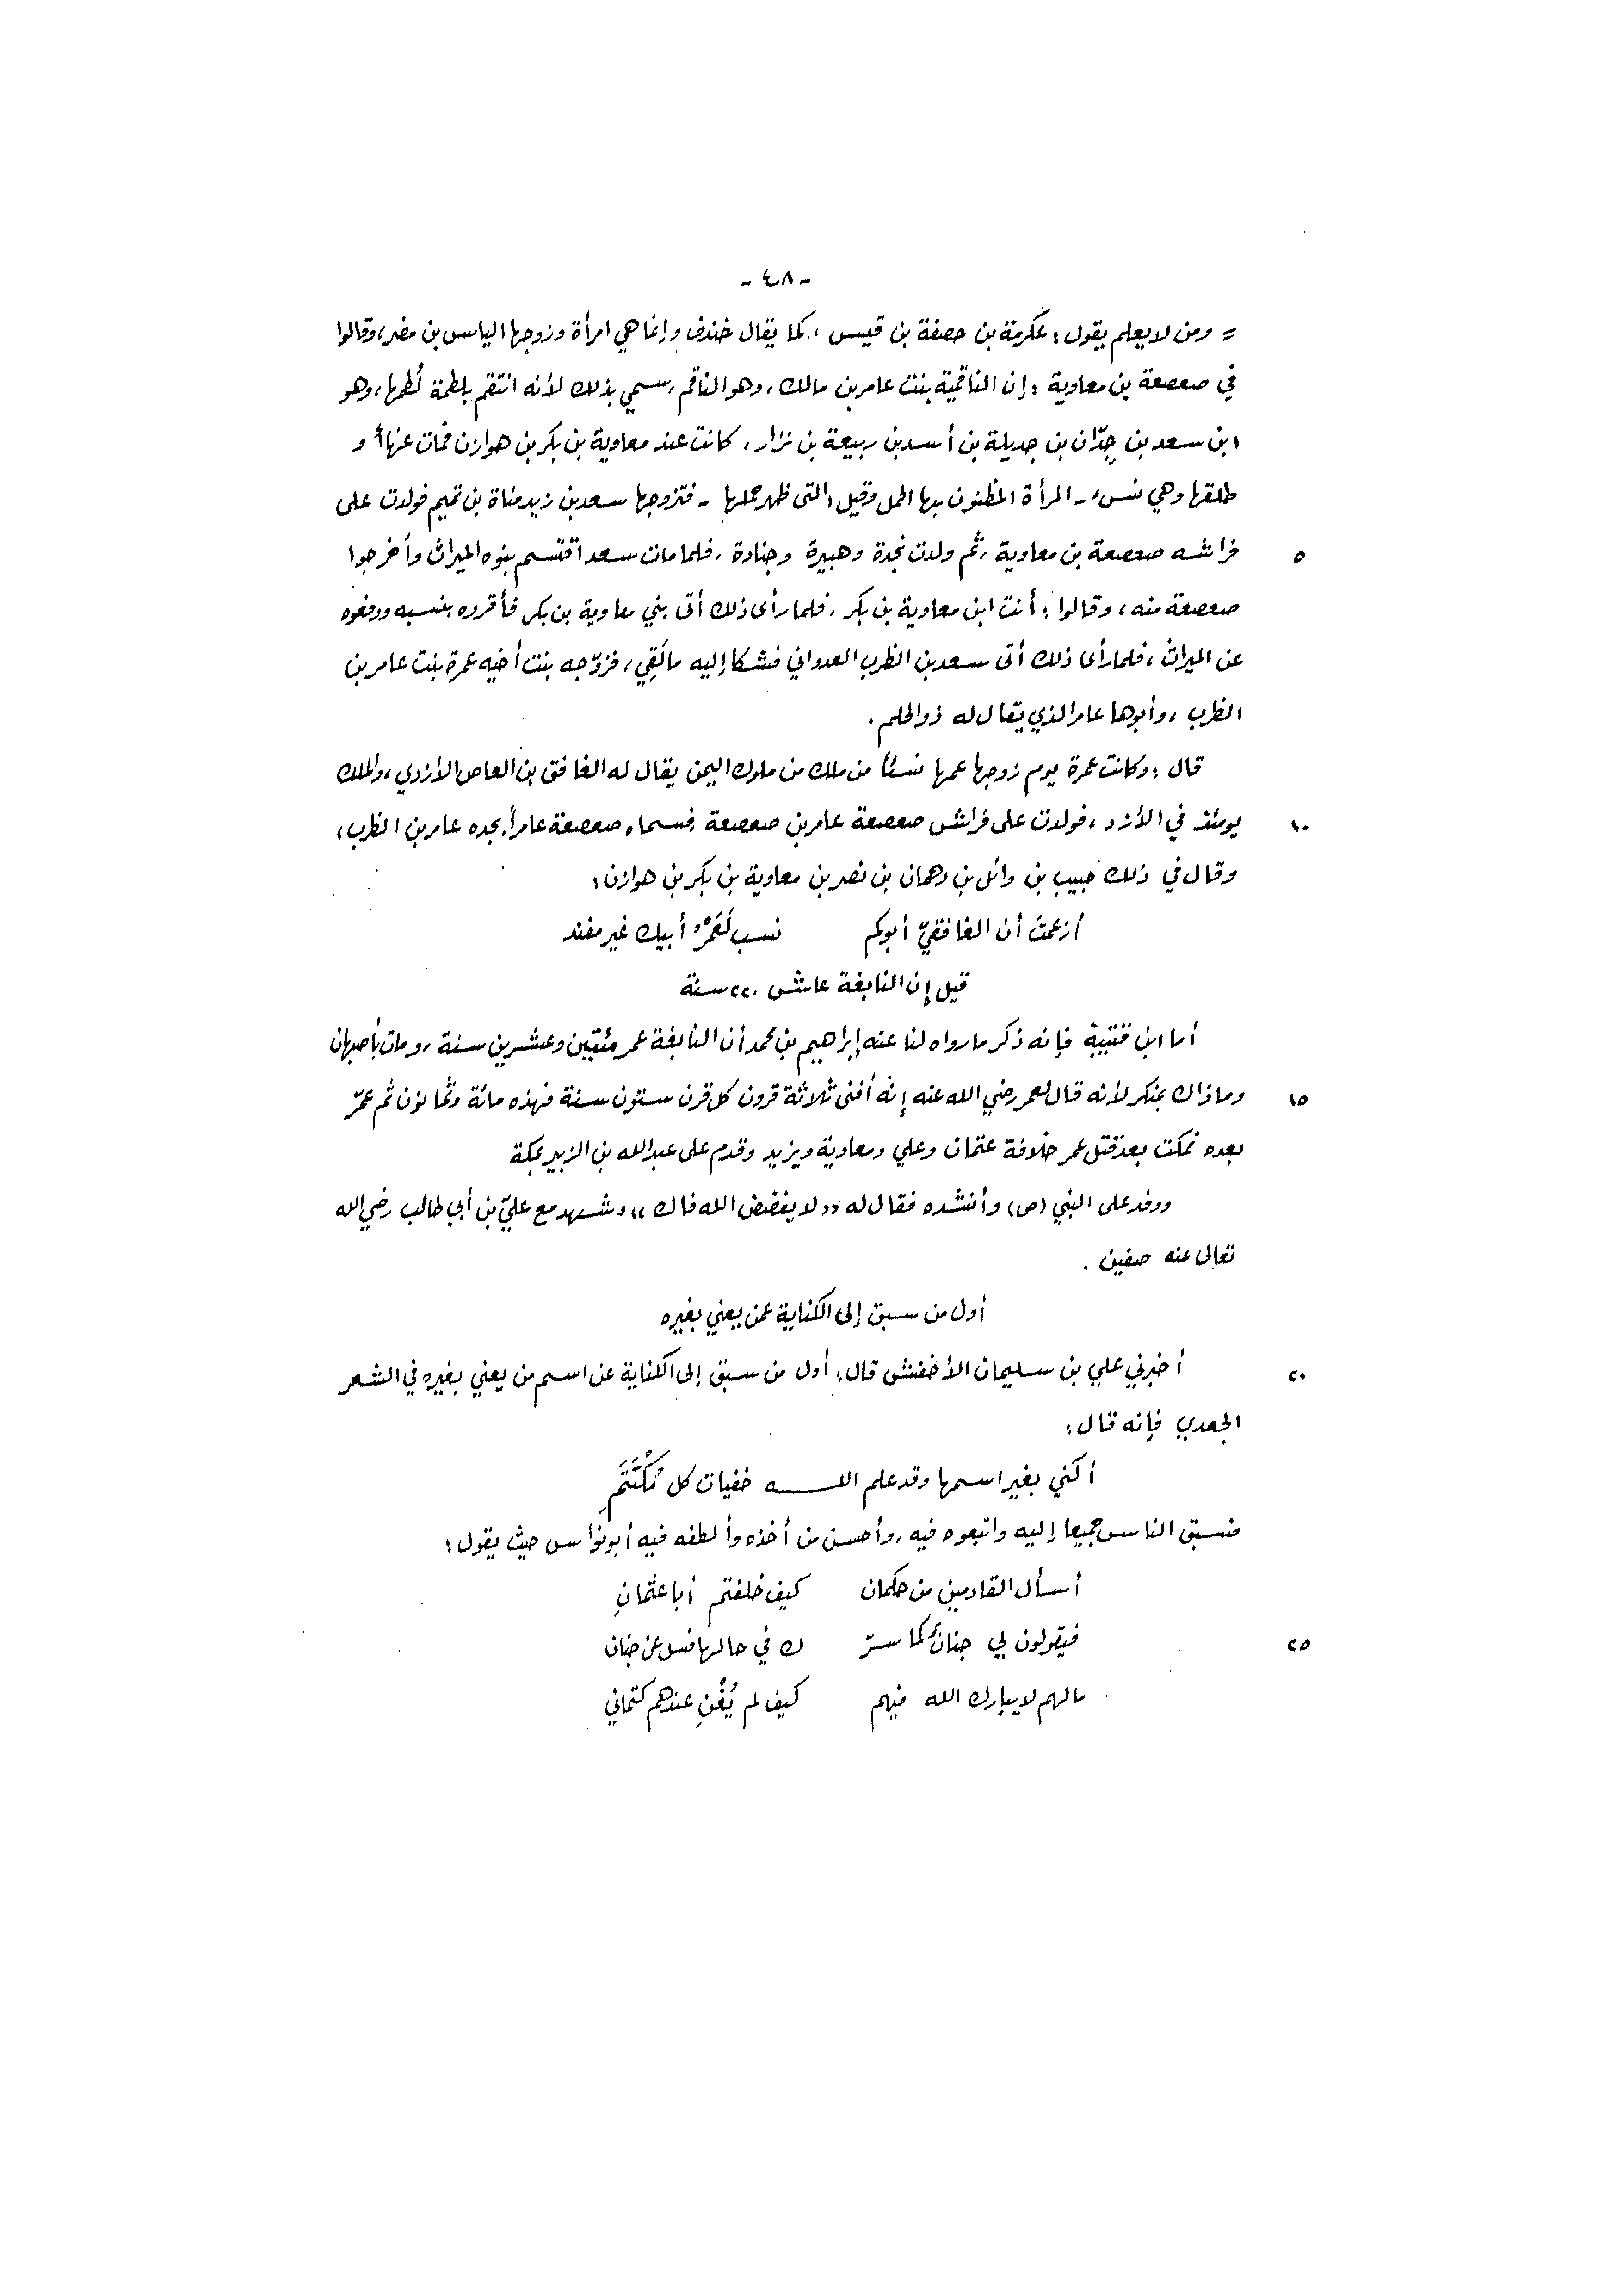 - ٤٨ -
= ومن لا يعلم يقول: عكرمة بن حصفة بن قيس، كما يقال خندف وإنما هي امرأة وزوجها الياس بن مضر، وقالوا
في صعصعة بن معاوية: إن الناقمية بنت عامر بن مالك، وهو الناقم، سمي بذلك لأنه انتقم بلطمة لُطمها، وهو
ابن سعد بن جِدّان بن جديلة بن أسد بن ربيعة بن نزار، كانت عند معاوية بن بكر بن هوازن فمات عنها أو
طلقها وهي نسء - المرأة المظنون بها الحمل وقيل: التي ظهر حملها - فتزوجها سعد بن زيد مناة بن تميم فولدت على
٥ فراشه صعصعة بن معاوية، ثم ولدت نجدة وهبيرة وجنادة، فلما مات سعد اقتسم بنوه الميراث وأخرجوا
صعصعة منه، وقالوا: أنت ابن معاوية بن بكر، فلما رأى ذلك أتى بني معاوية بن بكر فأقروه بنسبه ودفعوه
عن الميراث، فلما رأى ذلك أتى سعد بن الظرب العدواني فشكا إليه ما لَقِي، فزوّجه بنت أخيه عمرة بنت عامر بن
الظرب، وأبوها عامر الذي يقال له ذو الحلم.
قال: وكانت عمرة يوم زوجها عمها نسئاً من ملك من ملوك اليمن يقال له الغافق بن العاص الأزدي، والملك
١٠ يومئذ في الأزد، فولدت على فراش صعصعة عامر بن صعصعة فسماه صعصعة عامراً بجده عامر بن الظرب،
وقال في ذلك حبيب بن وائل بن دهمان بن نصر بن معاوية بن بكر بن هوازن:
أزعمتَ أن الغافقيّ أبوكم نسب لَعَمْرُ أبيك غير مفند
قيل إن النابغة عاش ٢٢٠ سنة
أما ابن قتيبة فإنه ذكر ما رواه لنا عنه إبراهيم بن محمد أن النابغة عمر مئتين وعشرين سنة، ومات بأصبهان
١٥ وما ذاك بمنكر لأنه قال لعمر رضي الله عنه إنه أفنى ثلاثة قرون كل قرن ستون سنة فهذه مائة وثمانون ثم عمّر
بعده فمكث بعد قتل عمر خلافة عثمان وعلي ومعاوية ويزيد وقدم على عبد الله بن الزبير بمكة
ووفد على النبي (ص) وأنشده فقال له «لا يفضض الله فاك» وشهد مع عليّ بن أبي طالب رضي الله
تعالى عنه صفين.
أول من سبق إلى الكناية عمن يعني بغيره
٢٠ أخبرني علي بن سليمان الأخفش قال: أول من سبق إلى الكناية عن اسم من يعني بغيره في الشعر
الجعدي فإنه قال:
أكني بغير اسمها وقد علم اللـــــه خفيات كل مُكْتَتَمِ
فسبق الناس جميعا إليه واتبعوه فيه، وأحسن من أخذه وألطفه فيه أبو نواس حيث يقول:
أسأل القادمين من حكمان كيف خلفتم أبا عثمانِ
٢٥ فيقولون لي جنانٌ كما سرّ ك في حالها فسل عن جنان
ما لهم لا يبارك الله فيهم كيف لم يُغْنِ عندهم كتماني